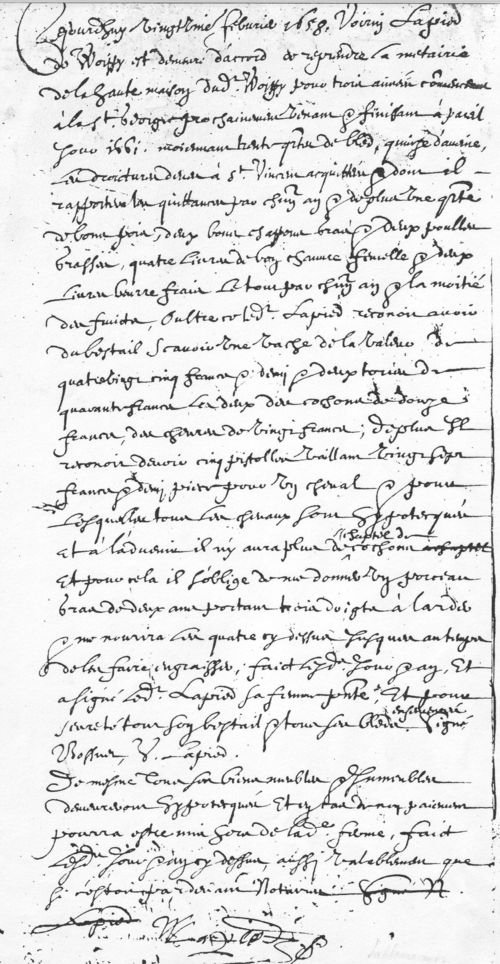 Cejourdhuy vingtiesme febvrie 1658. Voirin Lapied
de Woippy est demeuré d'accord de reprendre la metairie
de la haute maison dud^t Woippy pour trois année commencan
à la S^t George prochainemen venan & finissan à pareil
jour 1661. moiennan trente q^rte de bled, quinze d'aveine,
les droictures deues à S^t Vincen acquitter & dont il
rapportera les quittances par ch~un an & de plus une q^rte
de bons pois, deux bons chappons gras & deux poulles
grasses, quatre livres de bon chanvre femelle & deux
livres beurre frais le tout par ch~un an & la moitié
des fruicts, Oultre ce led^t Lapied reconoit avoir
du bestail scavoir une vache de la valeur de
quatrevingt cinq francs & demi & deux torins de
quarante francs les deux des cochons de douze
francs, des chevres de vingt francs, de plus Il
reconoit devoir cinq pistolles vaillans vingt sept
francs & demi piece pour un cheval & pour
lesquelles tous les chevaux sont hypotecqués
Et à l'advenir il n'y aura plus de chaptel de cochons
Et pour cela il s'oblige de me donner un porceau
gras de deux ans portant trois doigts à larder
& me nourira les quatre cy dessus jusques au temps
de les faire engraisser, faict lesd^ts jour & an, Et
a signé led^t Lapied sa femme p~nte, Et pour
seureté tout son bestail & tous ses bleds ensemencés Signé
V. Lapied
De mesme tous ses biens meubles & Immeubles
demeureront hypotecqués Et en cas de non paiemen
pourra estre mis hors de lad^e ferme, faict
lesd^ts jour & an cy dessus, aussi valablemen que
si c'estoit pardevant Notaires
Lapied